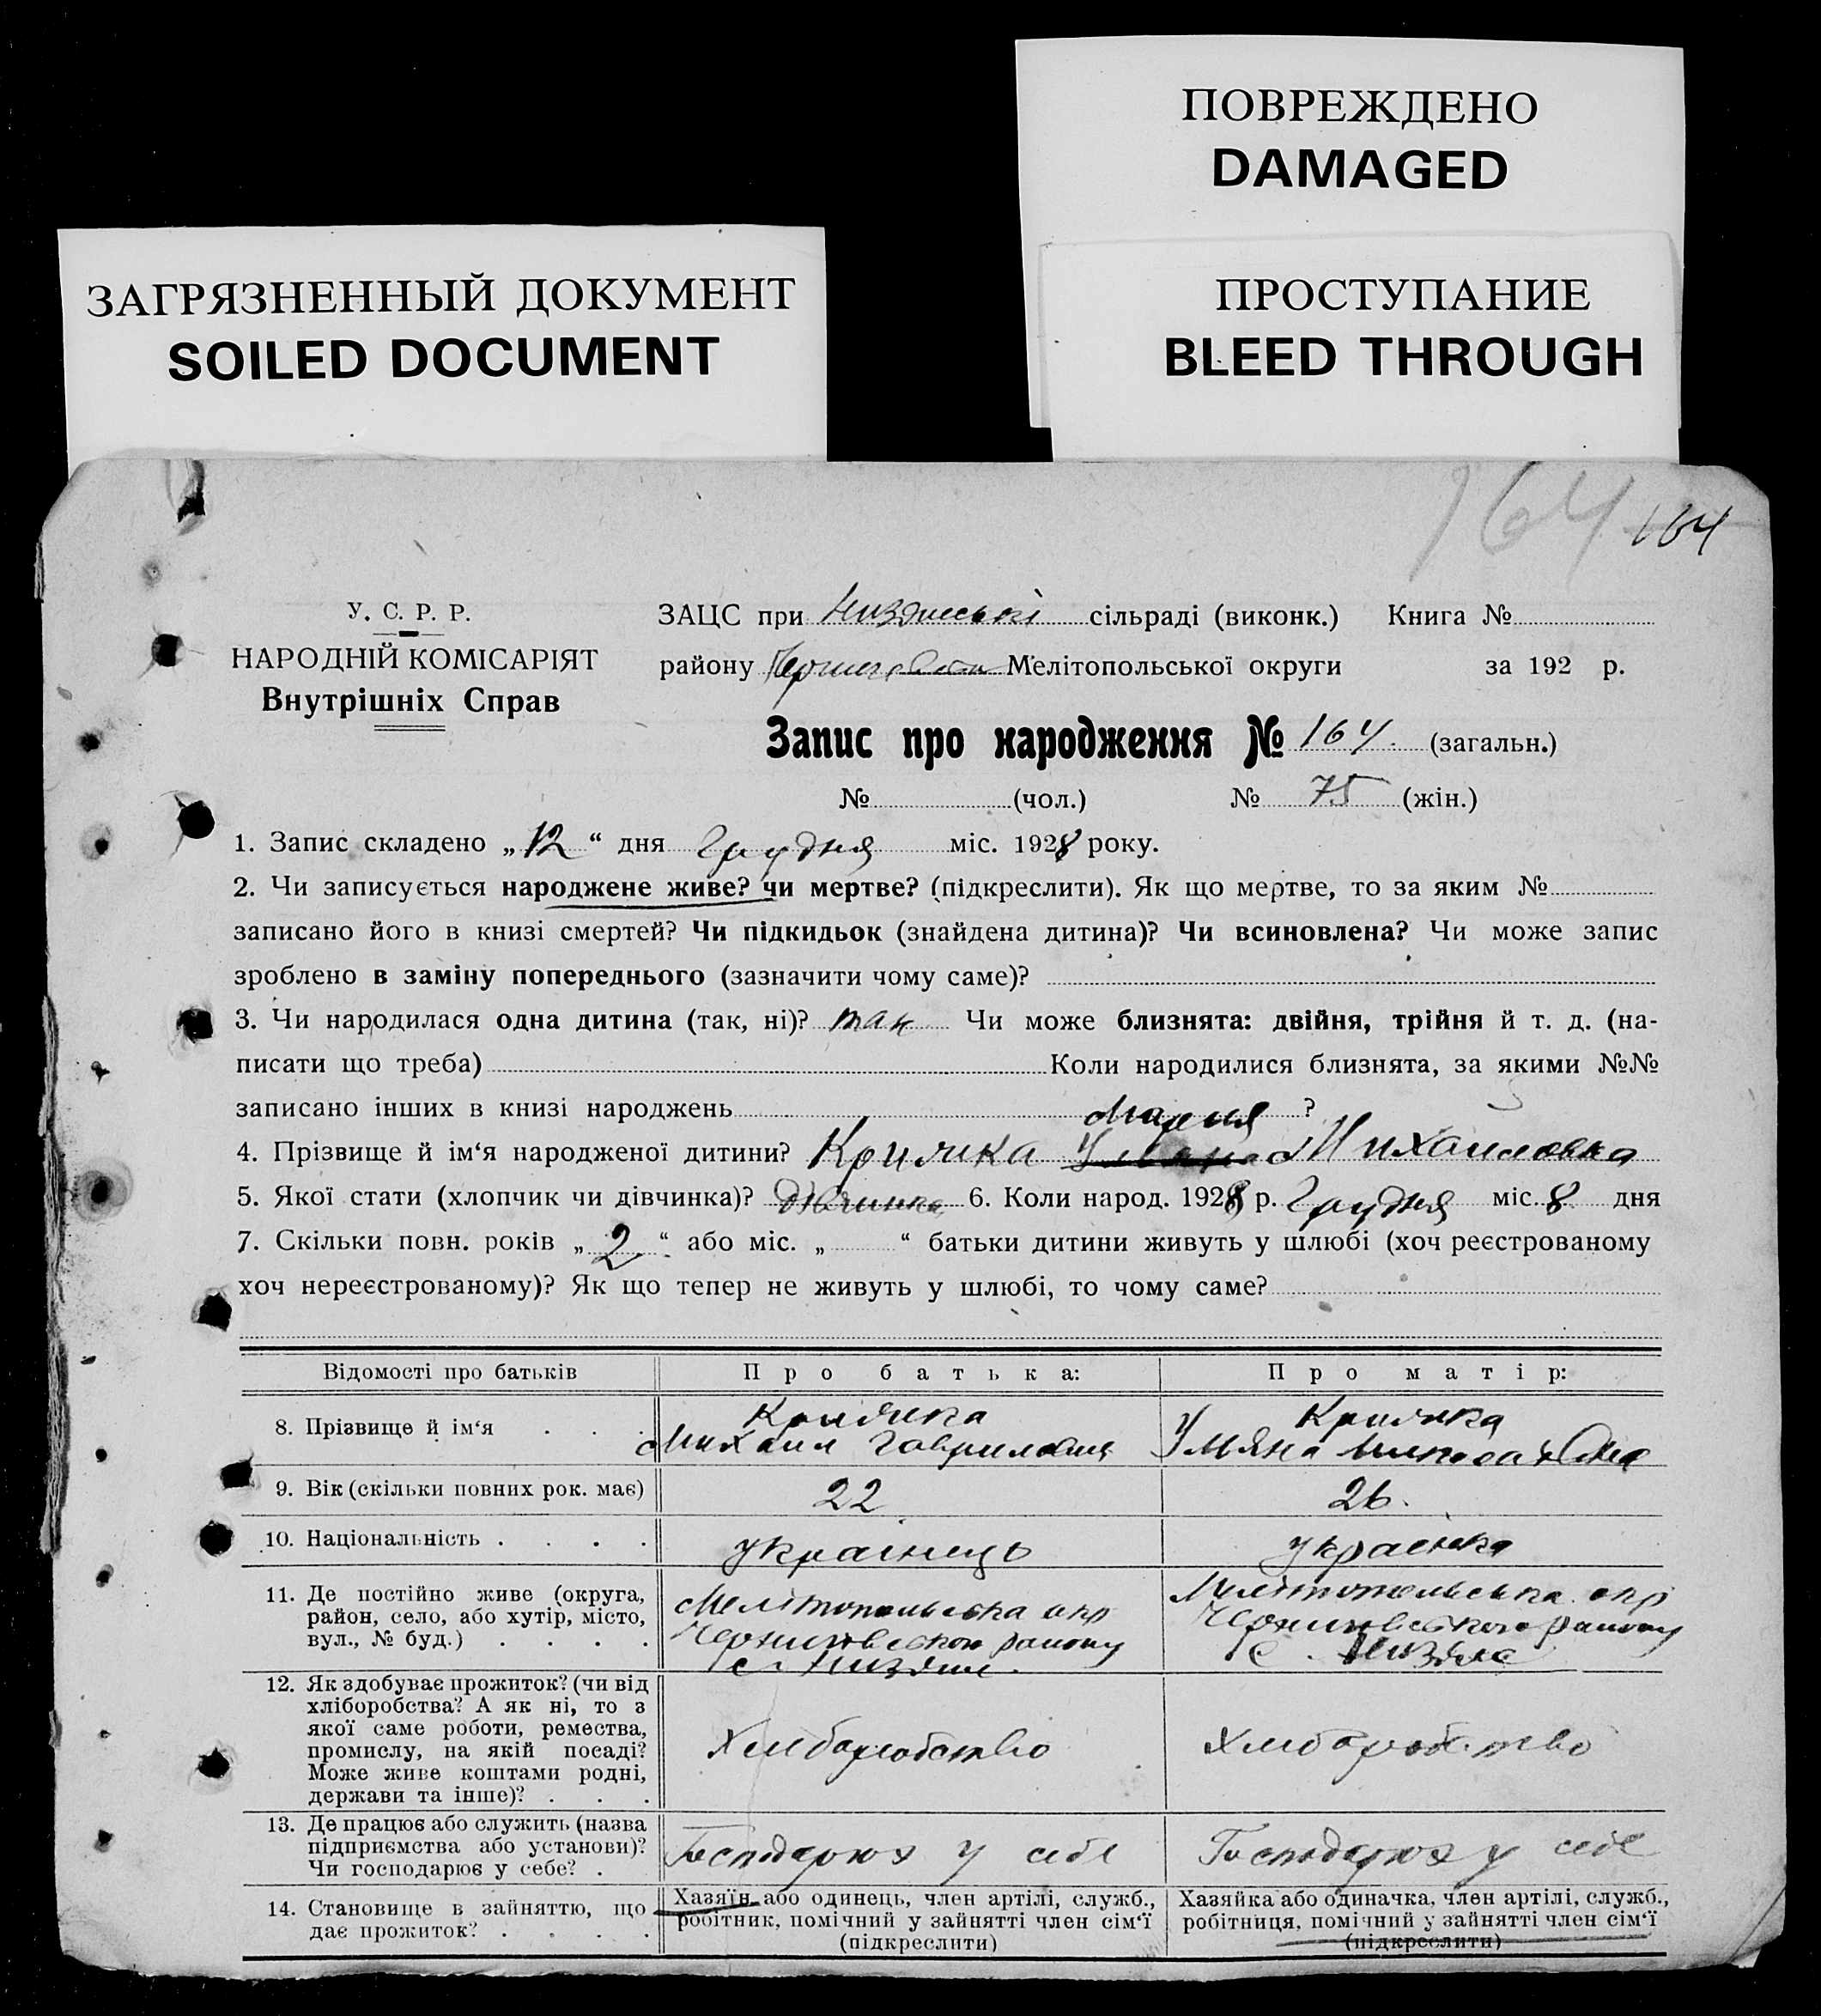 ПОВРЕЖДЕНО
DAMAGED
ЗАГРЯЗНЕННЫЙ ДОКУМЕНТ
SOILED DOCUMENT
ПРОСТУПАНИЕ
BLEED THROUGH
164 164
У. С. Р. Р.
НАРОДНІЙ КОМІСАРІЯТ
Внутрішніх Справ
ЗАЦС при сільраді (виконк.) Книга №
району Мелітопольської округи за 192 р.
Запис про народження № 164. (загальн.)
№ (чол.) № 75 (жін.)
1. Запис складено „12“ дня Грудня міс. 1928 року.
2. Чи записується народжене живе? чи мертве? (підкреслити). Як що мертве, то за яким №
записано його в книзі смертей? Чи підкидьок (знайдена дитина)? Чи всиновлена? Чи може запис
зроблено в заміну попереднього (зазначити чому саме)?
3. Чи народилася одна дитина (так, ні)? так Чи може близнята: двійня, трійня й т. д. (на-
писати що треба) Коли народилися близнята, за якими №№
записано інших в книзі народжень ?
Мария
4. Прізвище й ім‘я народженої дитини? Крилика Михаиловна
5. Якої стати (хлопчик чи дівчинка)? Дівчинка 6. Коли народ. 1928 р. Грудня міс. 8 дня
7. Скільки повн. років „2“ або міс. „ “ батьки дитини живуть у шлюбі (хоч реєстрованому
хоч нереєстрованому)? Як що тепер не живуть у шлюбі, то чому саме?
Відомості про батьків
Про батька:
Про матір:
8. Прізвище й ім‘я . . .
Михаил Гаврилович
Ульяна
9. Вік (скільки повних рок. має)
22
26.
10. Національність . . . .
українець
українка
11. Де постійно живе (округа,
район, село, або хутір, місто,
вул., № буд.) . . . .
Мелітопольська окр
району
Мелітопольська окр
району
12. Як здобуває прожиток? (чи від
хліборобства? А як ні, то з
якої саме роботи, ремества,
промислу, на якій посаді?
Може живе коштами родні,
держави та інше)? . . .
Хліборобство
Хліборобство
13. Де працює або служить (назва
підприємства або установи)?
Чи господарює у себе? .
Господарює у себе
Господарює у себе
14. Становище в зайняттю, що
дає прожиток? . . . .
Хазяїн або одинець, член артілі, служб.,
робітник, помічний у зайнятті член сім‘ї
(підкреслити)
Хазяйка або одиначка, член артілі, служб.,
робітниця, помічний у зайнятті член сім‘ї
(підкреслити)